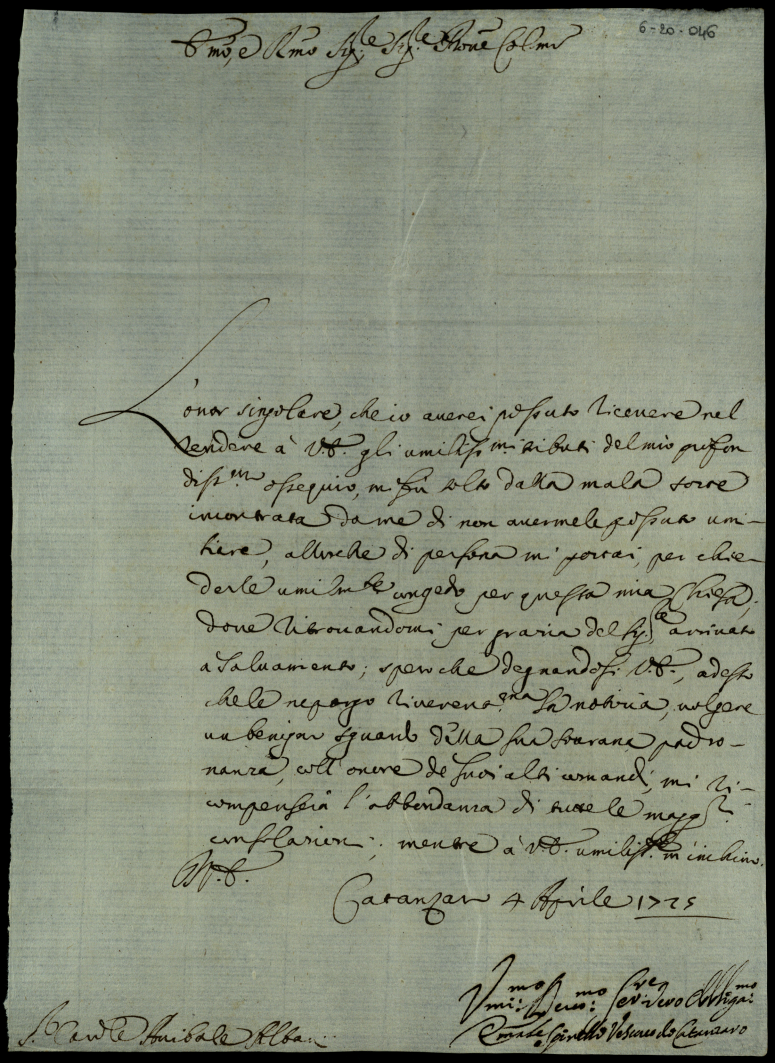 6-20-046
E.mo, e R.mo Sig.re, Sig.re P.rone Col.mo
L'onor singolare, che io averei possuto ricevere nel
rendere à V.E. gli umiliss.mi tributi del mio profon
diss.mo ossequio, mi fù tolto dalla mala sorte
incontrata da me di non avermele possuto umi-
liare, allorche di persona mi portai, per chie-
derle umilm.te congedo per questa mia Chiesa,
dove ritrovandomi per grazia del Sig.re arrivato
a salvamento; spero che degnandosi V.E., adesto
che le ne porgo riverent.ma la notizia, volgere
un benigno sguardo della sua sovrana padro-
nanza, coll'onore de suoi alti comandi, mi ri-
compenserà l'abbondanza di tutte le magg.ri
consolazioni; mentre à V.E. umiliss.te m'inchino.
D.V.E.
Catanzaro 4 Aprile 1725
Umi:mo Devo:mo Ser:re vero Obbliga:mo
Spinelli Vescovo di Catanzaro
S.r Card.le Anibale Albani